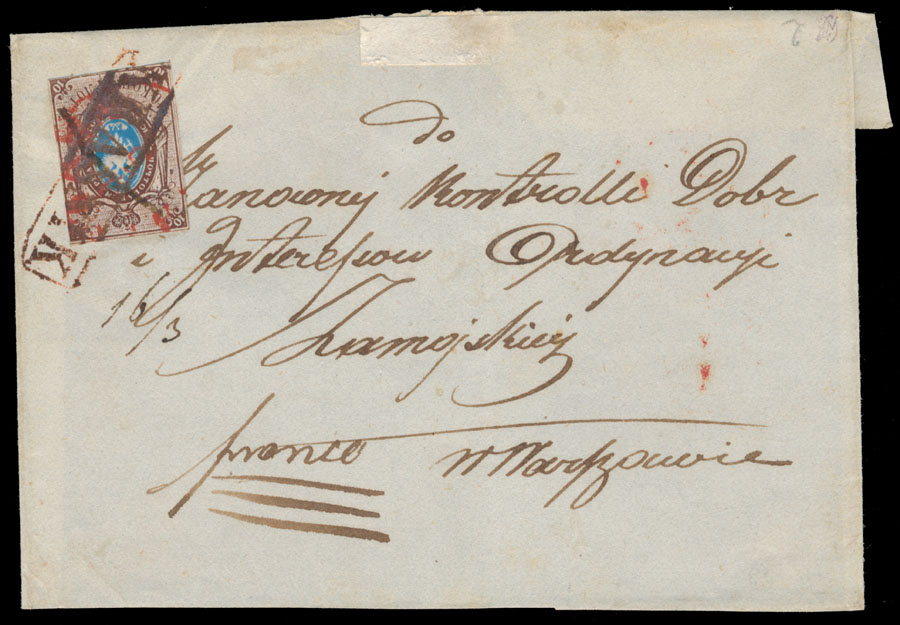 do
Szanownej Kontrolli Dobr
i Interessow Ordynacyi
16/3
Zamojskiéj
franco
w Warszawie